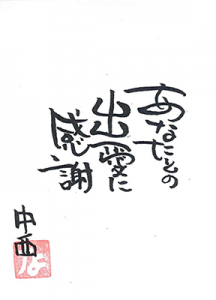 あなたとの
出愛に
感謝
中西
よ